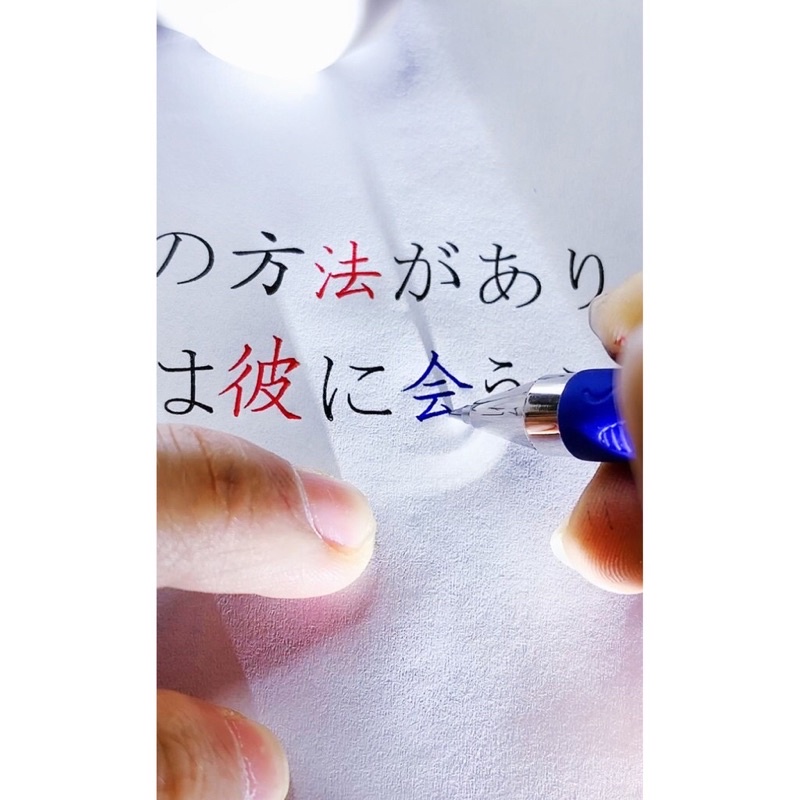 の方法があり
は彼に会う